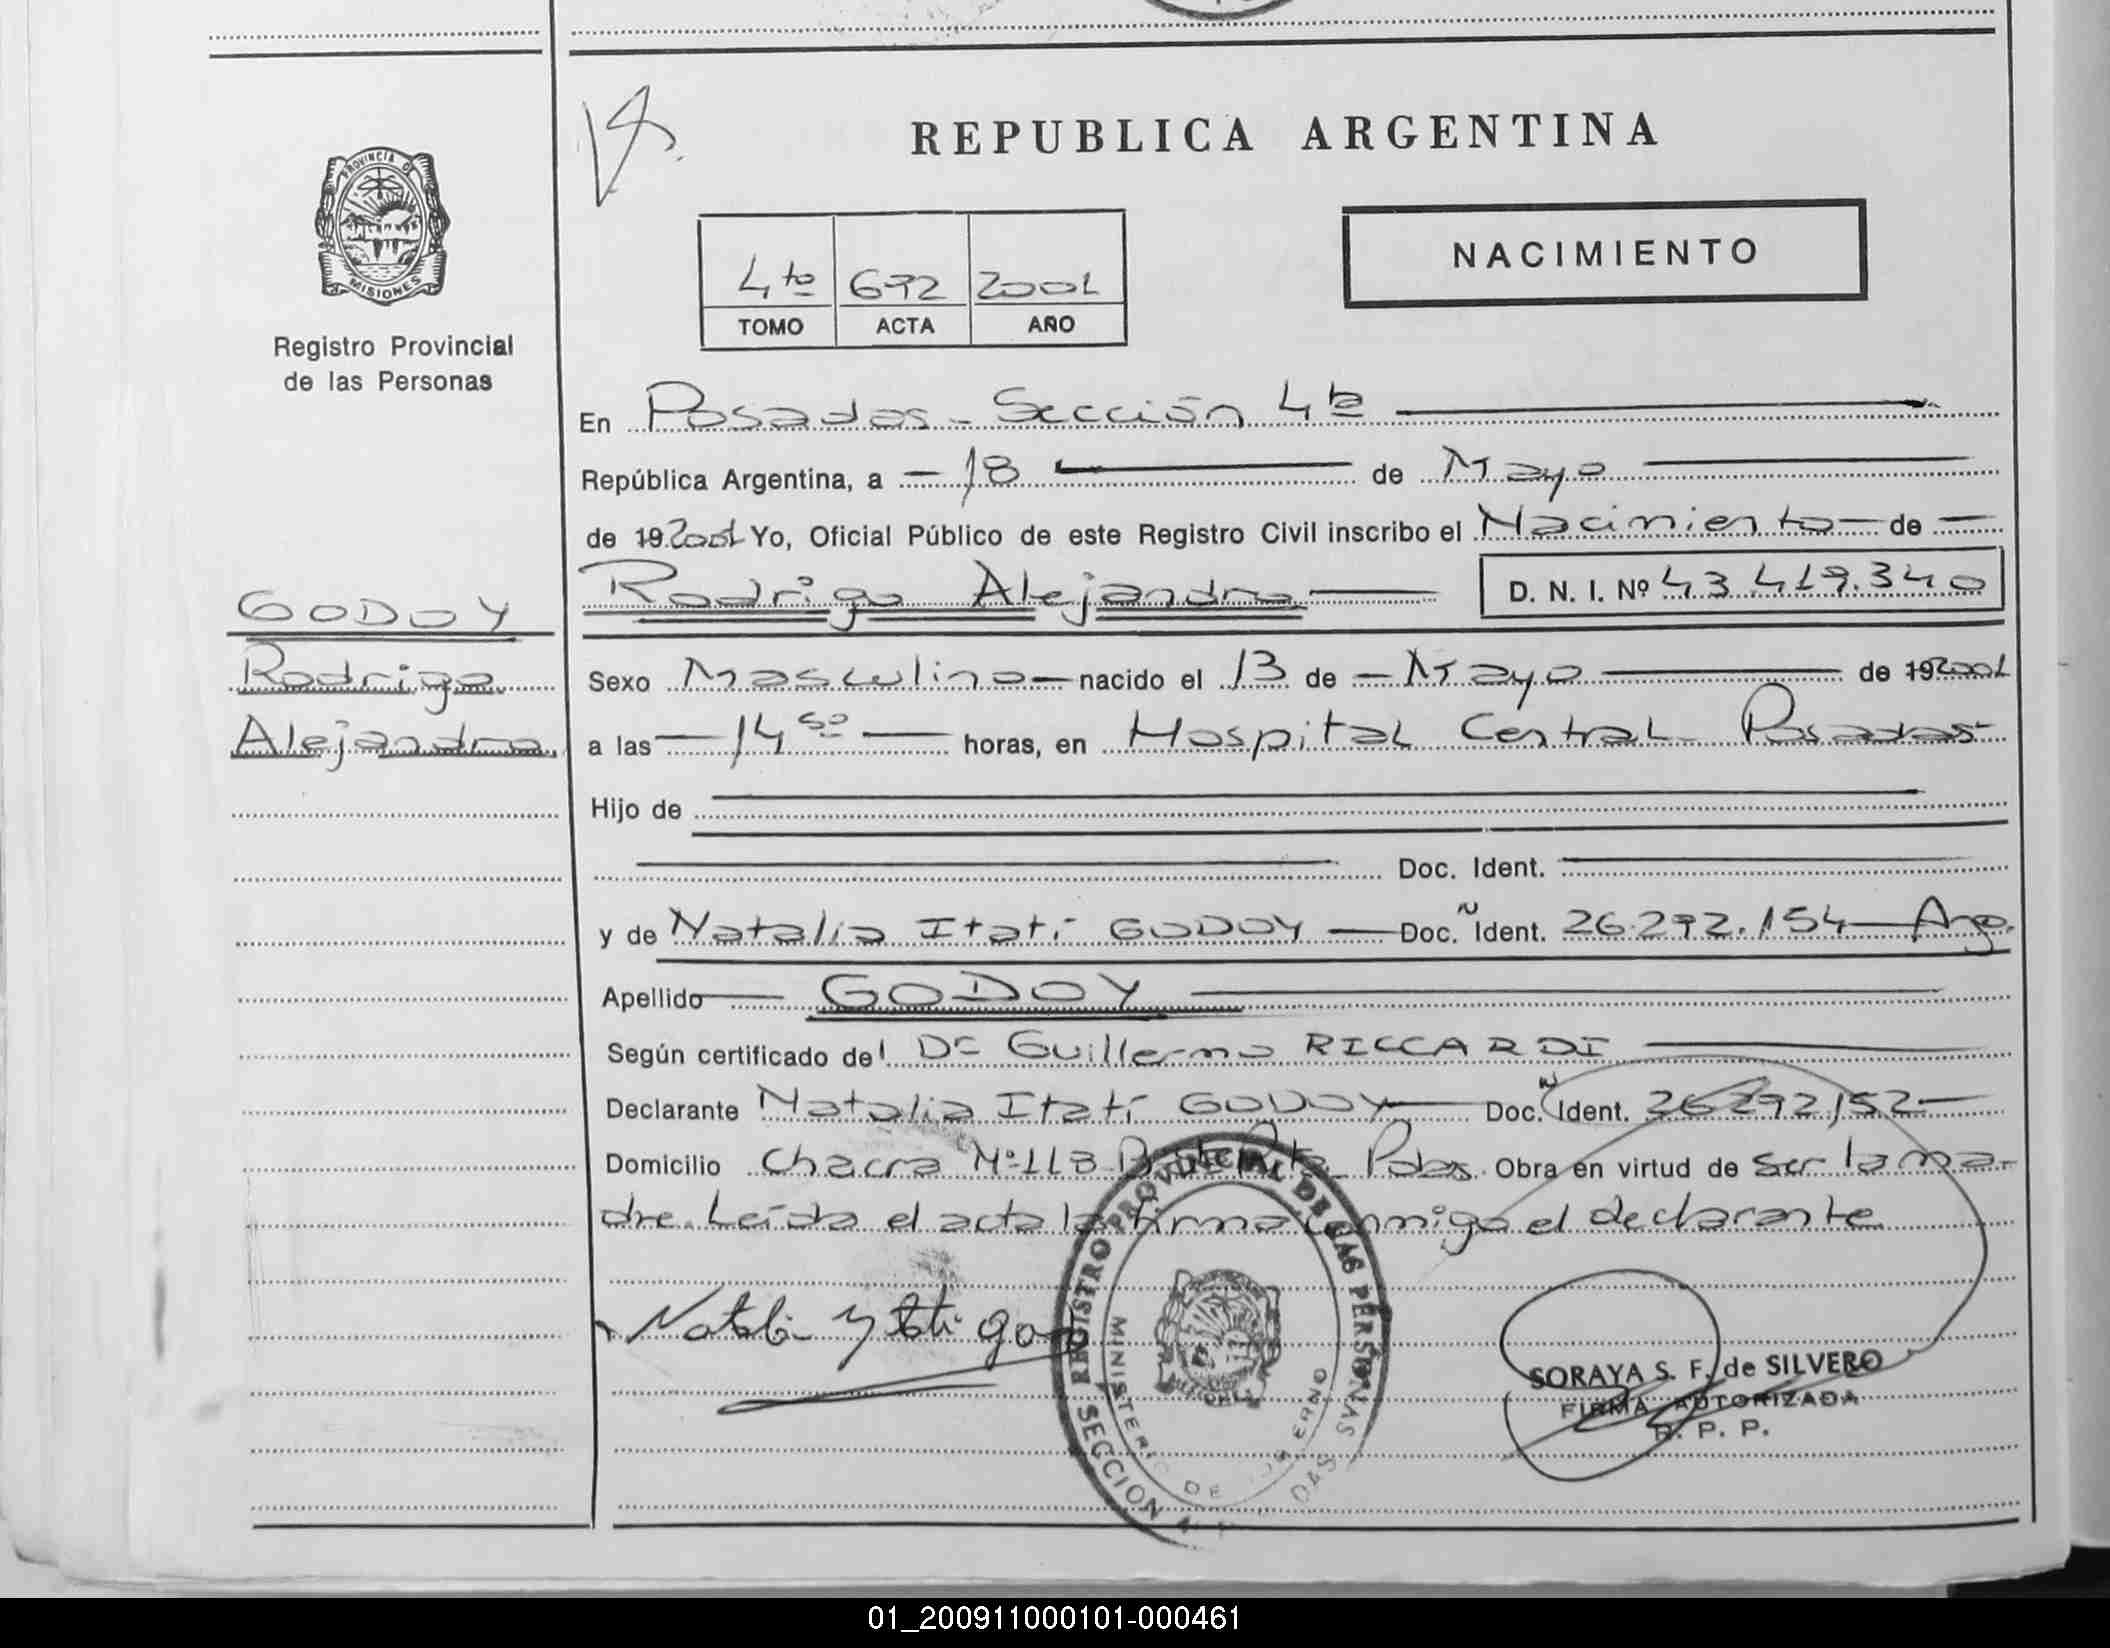 REPUBLICA ARGENTINA
PROVINCIA DE
MISIONES
Registro Provincial
de las Personas
NACIMIENTO
4to 692 2001
TOMO ACTA AÑO
En Posadas - Sección 4ta
República Argentina, a - 18 de Mayo
de 19 2001 Yo, Oficial Público de este Registro Civil inscribo el Nacimiento - de -
GODOY
Rodrigo Alejandro D. N. I. Nº 43.419.340
Rodrigo
Alejandro
Sexo Masculino - nacido el 13 de - Mayo de 19 2001
a las - 14 50 - horas, en Hospital Central - Posadas -
Hijo de
Doc. Ident.
y de Natalia Itatí GODOY - Doc. N Ident. 26.292.154 - Arg.
Apellido GODOY
Según certificado del Dr Guillermo RICCARDI
Declarante Natalia Itatí GODOY - Doc. N Ident. 26292152 -
Domicilio Chacra Nº 118 Pdas. Obra en virtud de ser la ma-
dre. Leída el acta la firma conmigo el declarante
Natalia Ytati godoy
REGISTRO PROVINCIAL DE LAS PERSONAS
MINISTERIO DE GOBIERNO
SECCION
SORAYA S. F. de SILVERO
FIRMA AUTORIZADA
R. P. P.
01_200911000101-000461